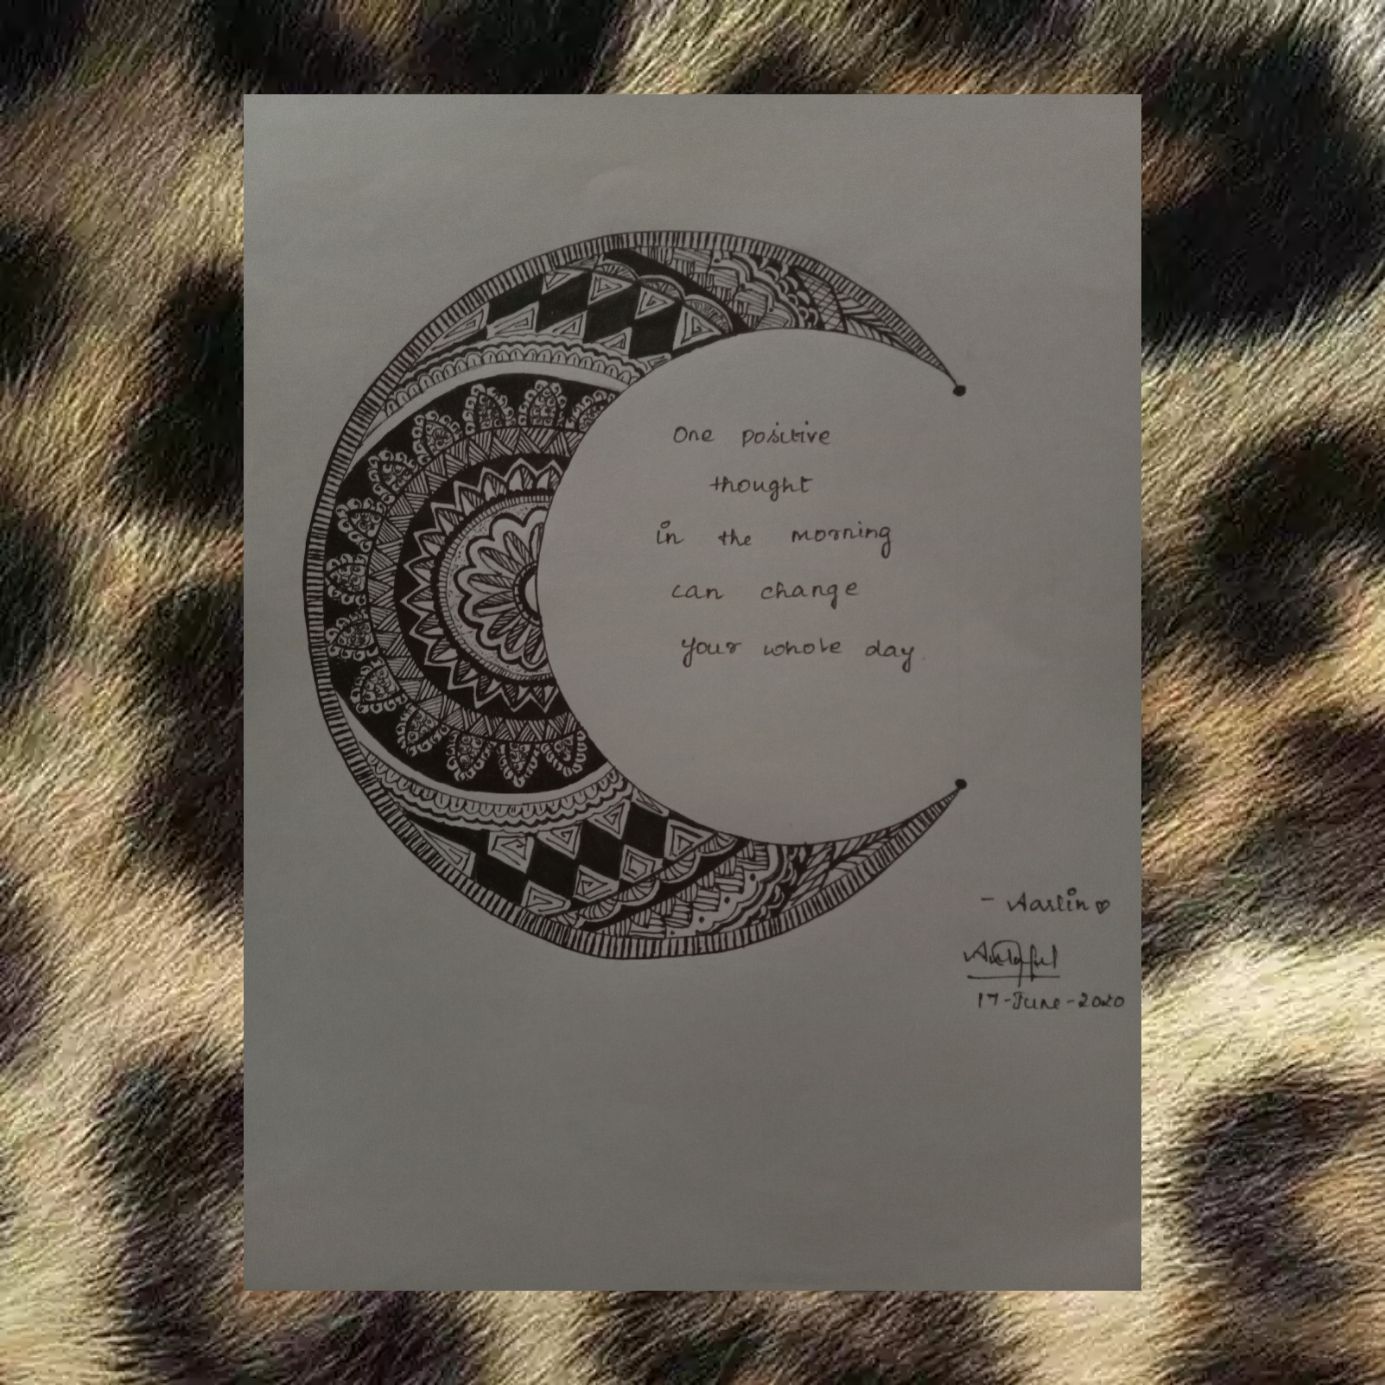 One positive
thought
in the morning
can change
your whole day.
- Aarlin
17-June-2020